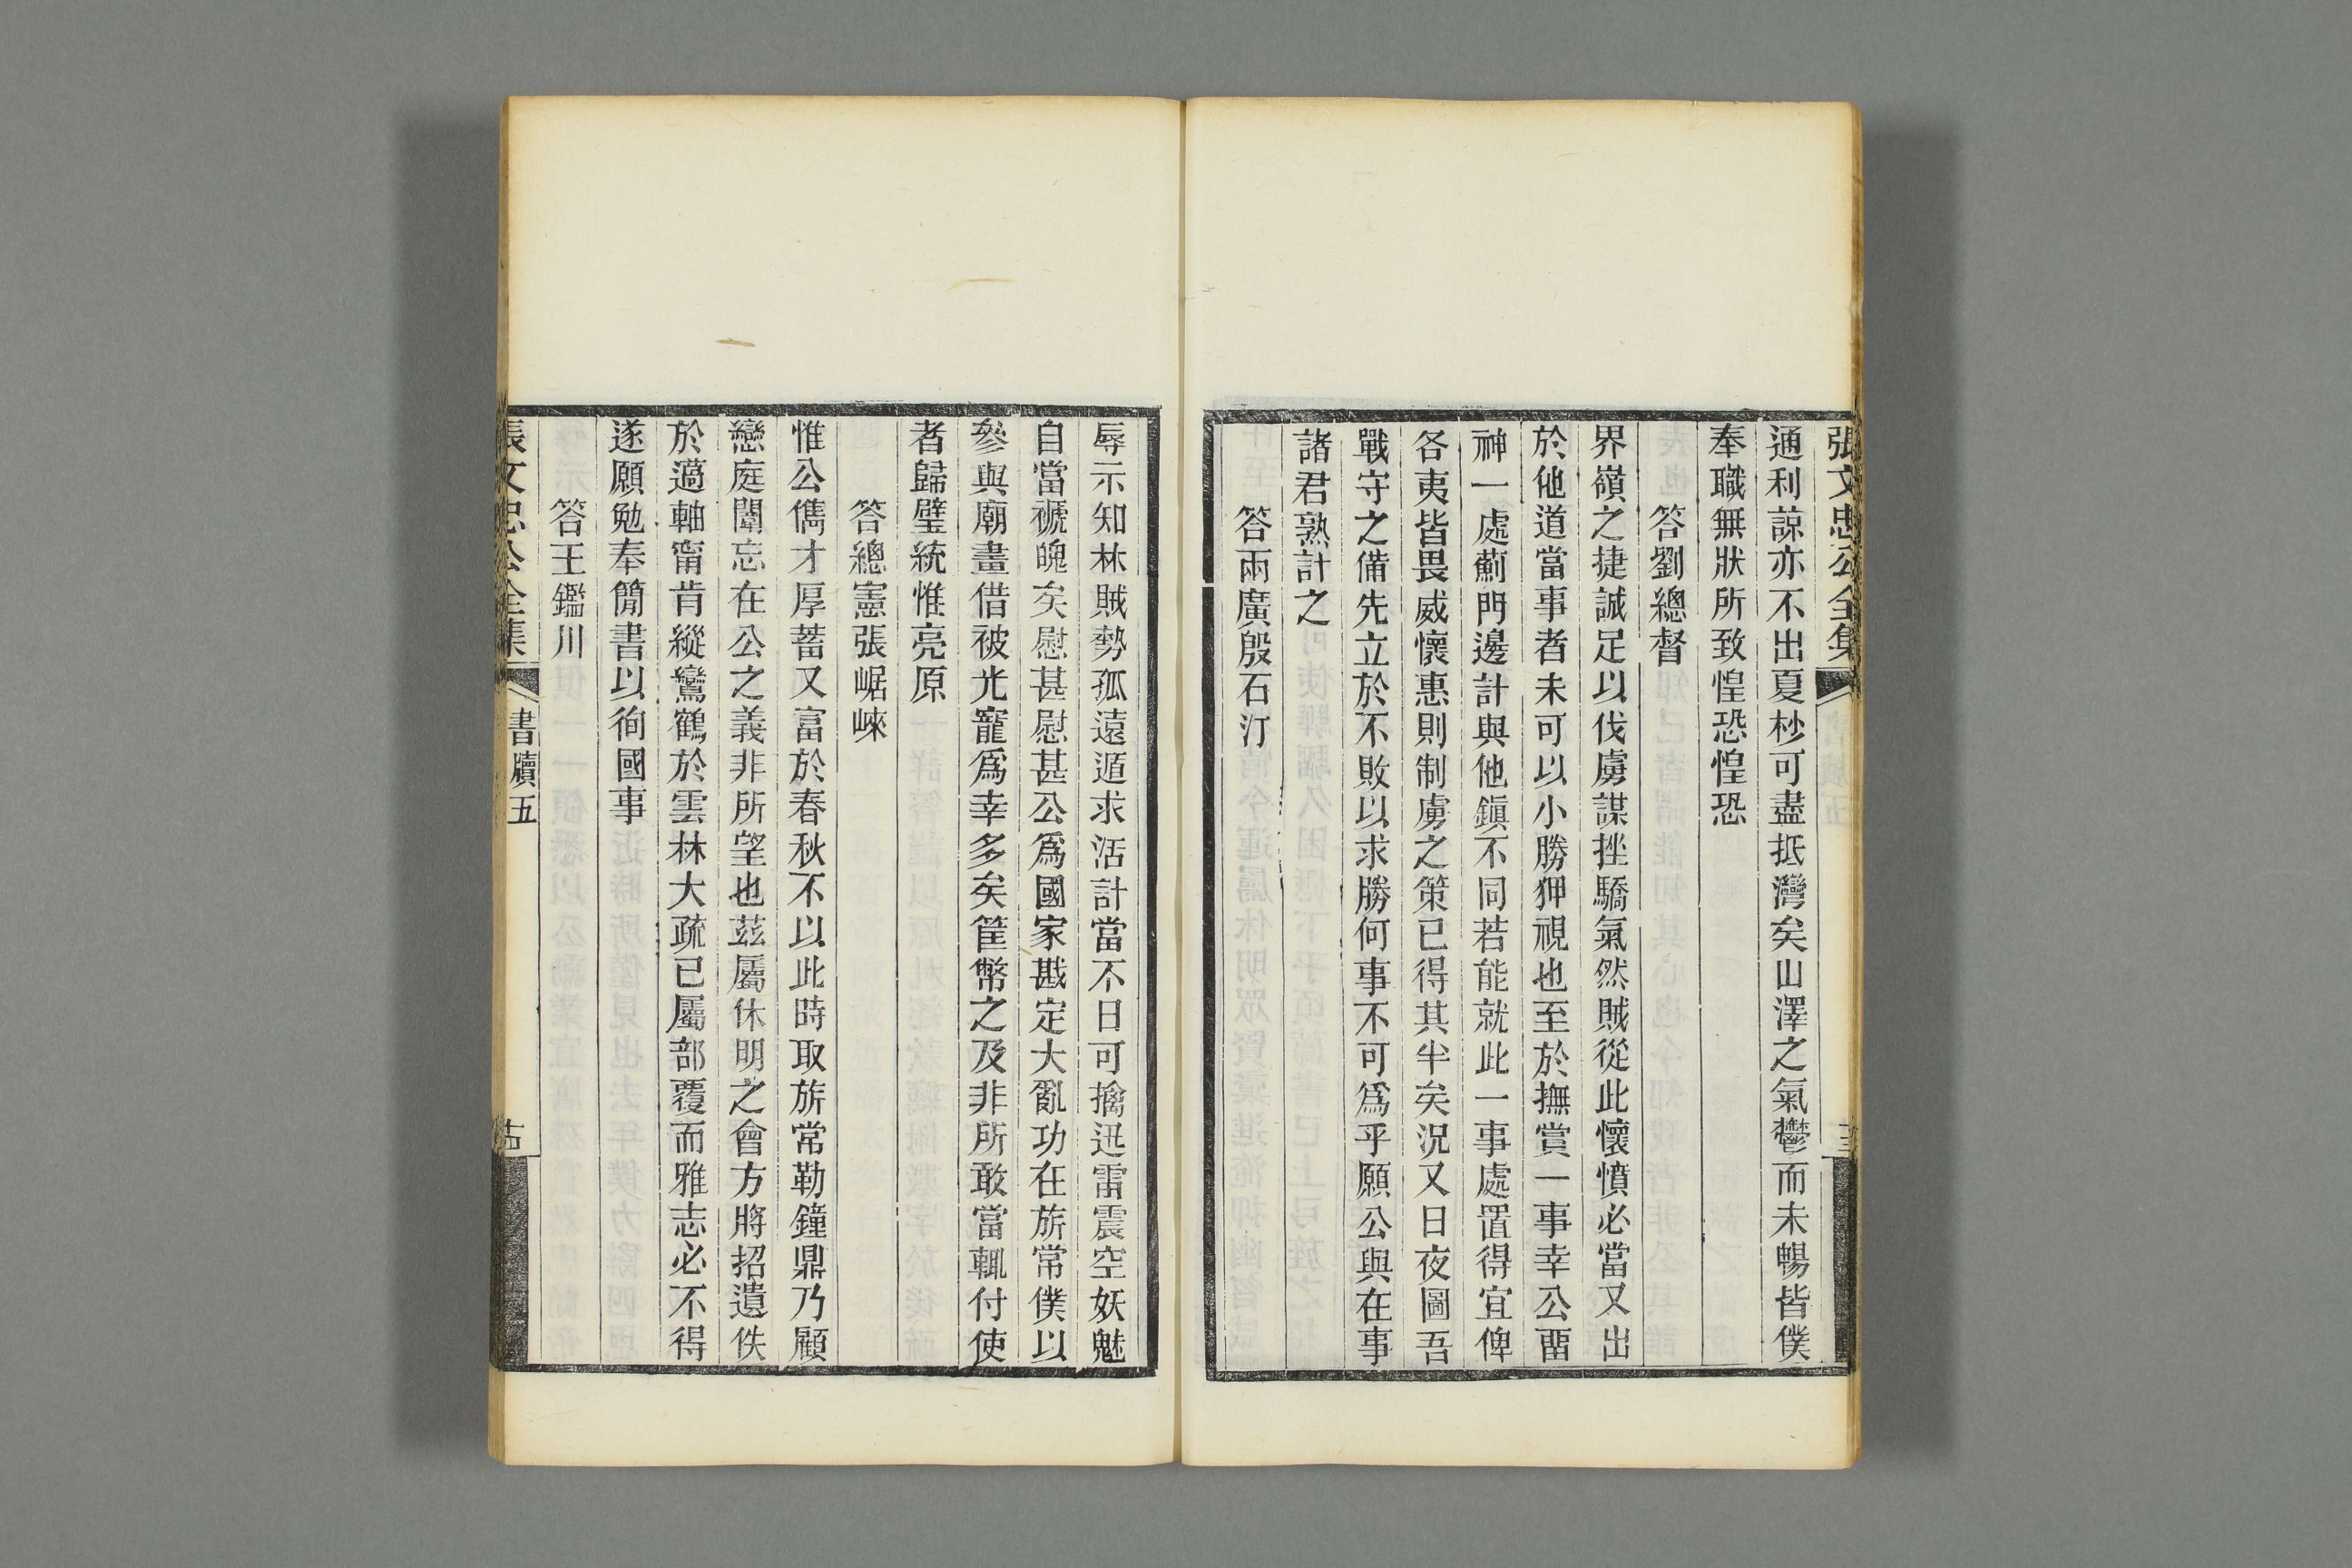 張文忠公全集
通利諒亦不出夏杪可盡抵灣矣山澤之氣鬱而未暢皆僕
奉職無狀所致惶恐惶恐
答劉總督
界嶺之捷誠足以伐虜謀挫驕氣然賊從此懷憤必當又出
於他道當事者未可以小勝狎視也至於撫賞一事幸公畱
神一處薊門邊計與他鎭不同若能就此一事處置得宜俾
各夷皆畏威懷惠則制虜之策已得其半矣況又日夜圖吾
戰守之備先立於不敗以求勝何事不可爲乎願公與在事
諸君熟計之
答兩廣殷石汀
辱示知林賊勢孤遠遁求活計當不日可擒迅雷震空妖魅
自當褫魄矣慰甚慰甚公爲國家戡定大亂功在旂常僕以
參與廟畫借被光寵爲幸多矣筐幣之及非所敢當輒付使
者歸璧統惟亮原
答總憲張崌崍
惟公儁才厚蓄又富於春秋不以此時取旂常勒鐘鼎乃顧
戀庭闈忘在公之義非所望也茲屬休明之會方將招遺佚
於薖軸甯肯縱鸞鶴於雲林大疏已屬部覆而雅志必不得
遂願勉奉簡書以徇國事
答王鑑川
張文忠公全集
書牘五